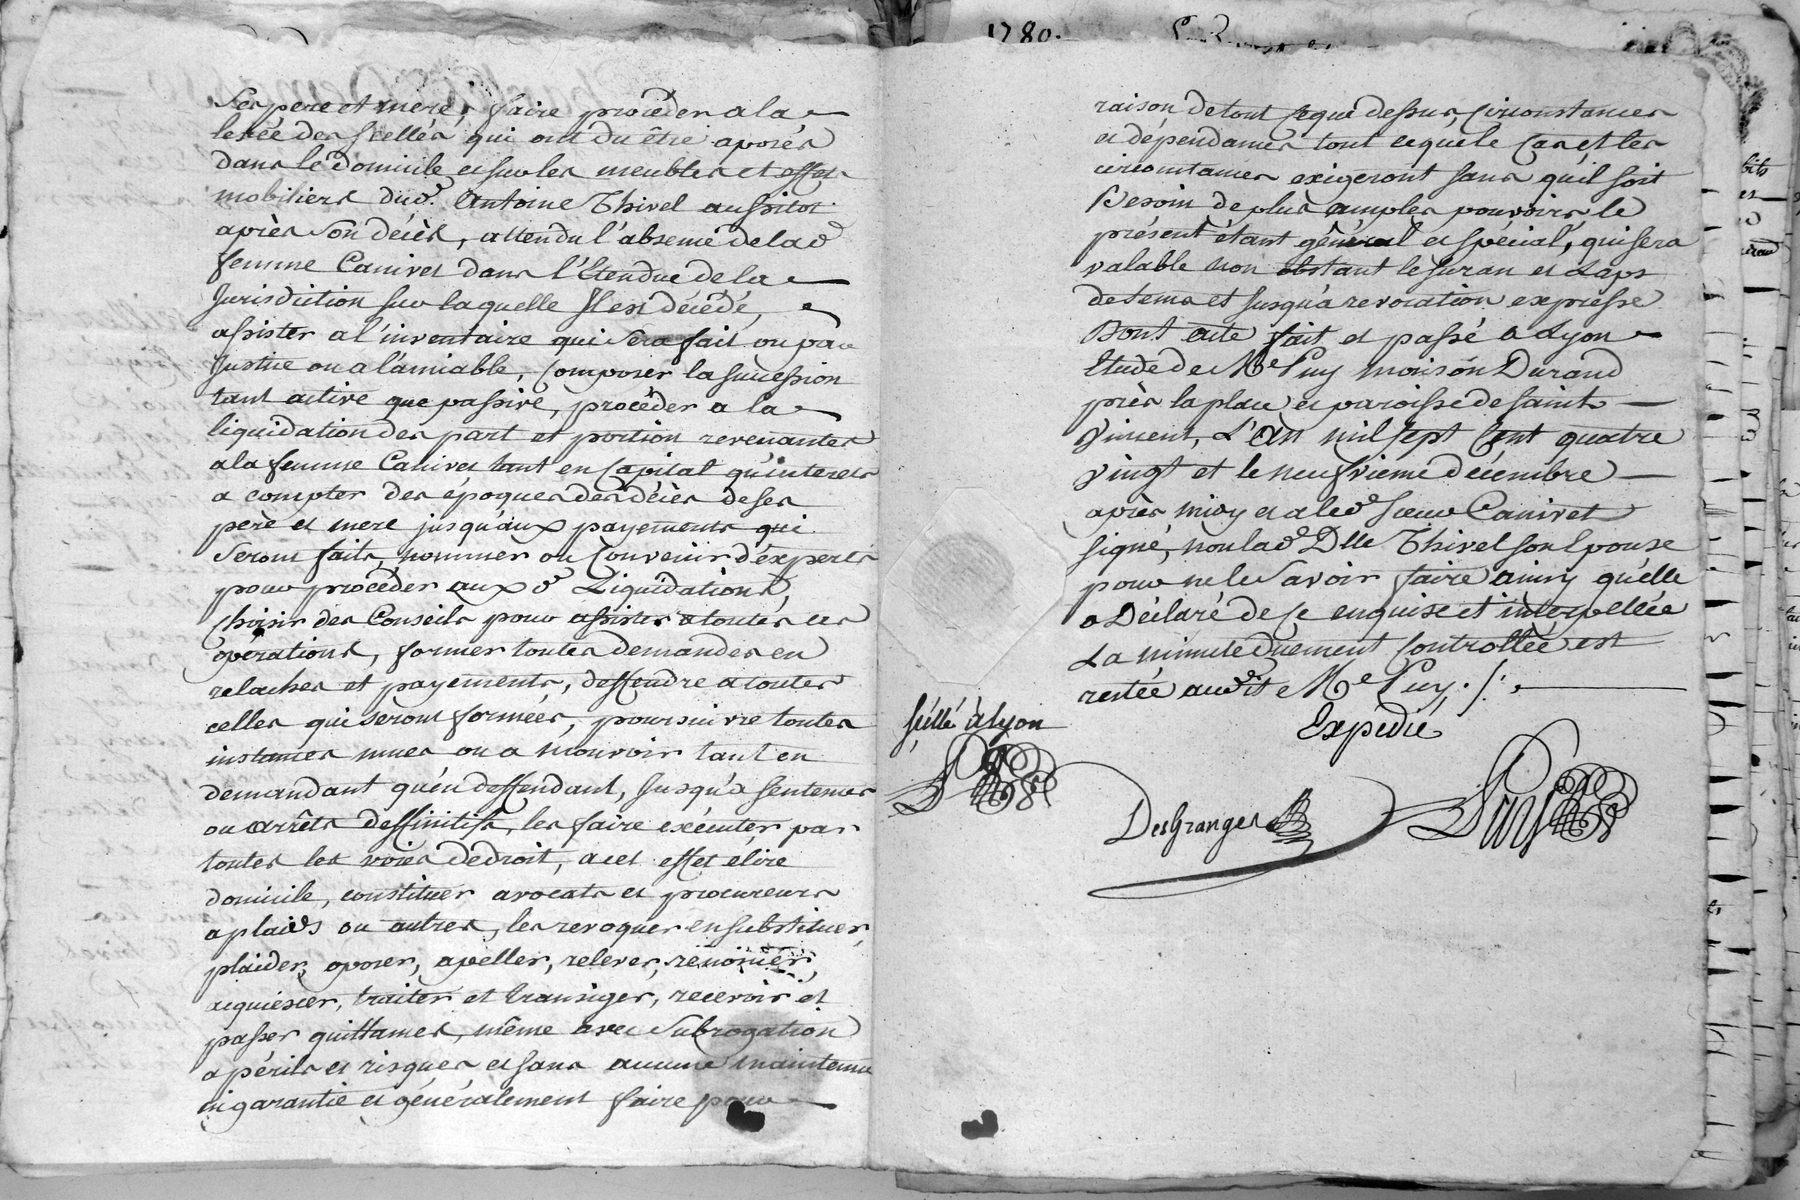 Ses pere et mere, faire procéder a la
levée des scellés qui ont du être aposés
dans le domicile et sur les meubles et effets
mobiliers dud. Antoine Thivel aussitot
après son décès, attendu l'absence de lad
femme Canivet dans l'Etendue de la
Jurisdiction sur laquelle Il est décédé,
assister a l'inventaire qui sera fait ou par
Justice ou a l'amiable, Composer la succession
tant active que passive, procéder a la
liquidation des part et portion revenantes
a la femme Canivet tant en Capital qu'interets
a compter des époques des décès de ses
père et mere jusqu'aux payements qui
seront faits, nommer ou Convenir d'experts
pour procéder aux d Liquidations,
Choisir des Conseils pour assister a toutes ces
opérations, former toutes demandes en
relaches et payements, deffendre a toutes
celles qui seront formées, poursuivre toutes
instances mues ou a mouvoir tant en
demandant qu'en deffendant, jusqu'a sentences
ou arrêts deffinitifs, les faire exécuter par
toutes les voies de droit, a cet effet élire
domicile, constituer avocats et procureurs
a plaids ou autres, les revoquer en substituer,
plaider, oposer, apeller, relever, renoncer,
acquiescer, traiter et transiger, recevoir et
passer quittances, même avec Subrogation
a périls et risques et sans aucune maintenue
ni garantie et généralement faire pour
1780.
raison de tout ce que dessus Circonstances
et dépendances tout ce que le Cas et les
circonstances exigeront sans qu'il soit
Besoin de plus amples pouvoirs le
présent étant général et spécial, qui sera
valable non obstant le suran et Laps
de tems et Jusqu'a revocation expresse
Dont acte fait et passé a Lyon
Etude de Me Puy maison Durand
près la place et paroisse de saint
Vincent, L'An mil sept Cent quatre
vingt et le neufvieme décembre
après midy et a led sieur Canivet
signé, non lad Dlle Thivel son Epouse
pour ne le savoir faire ainsy qu'elle
a Déclaré de ce enquise et interpellée
La minute duement Controllée est
restée aud. Me Puy ./.
Expedié
scéllé a Lyon
DesGranges
Puy